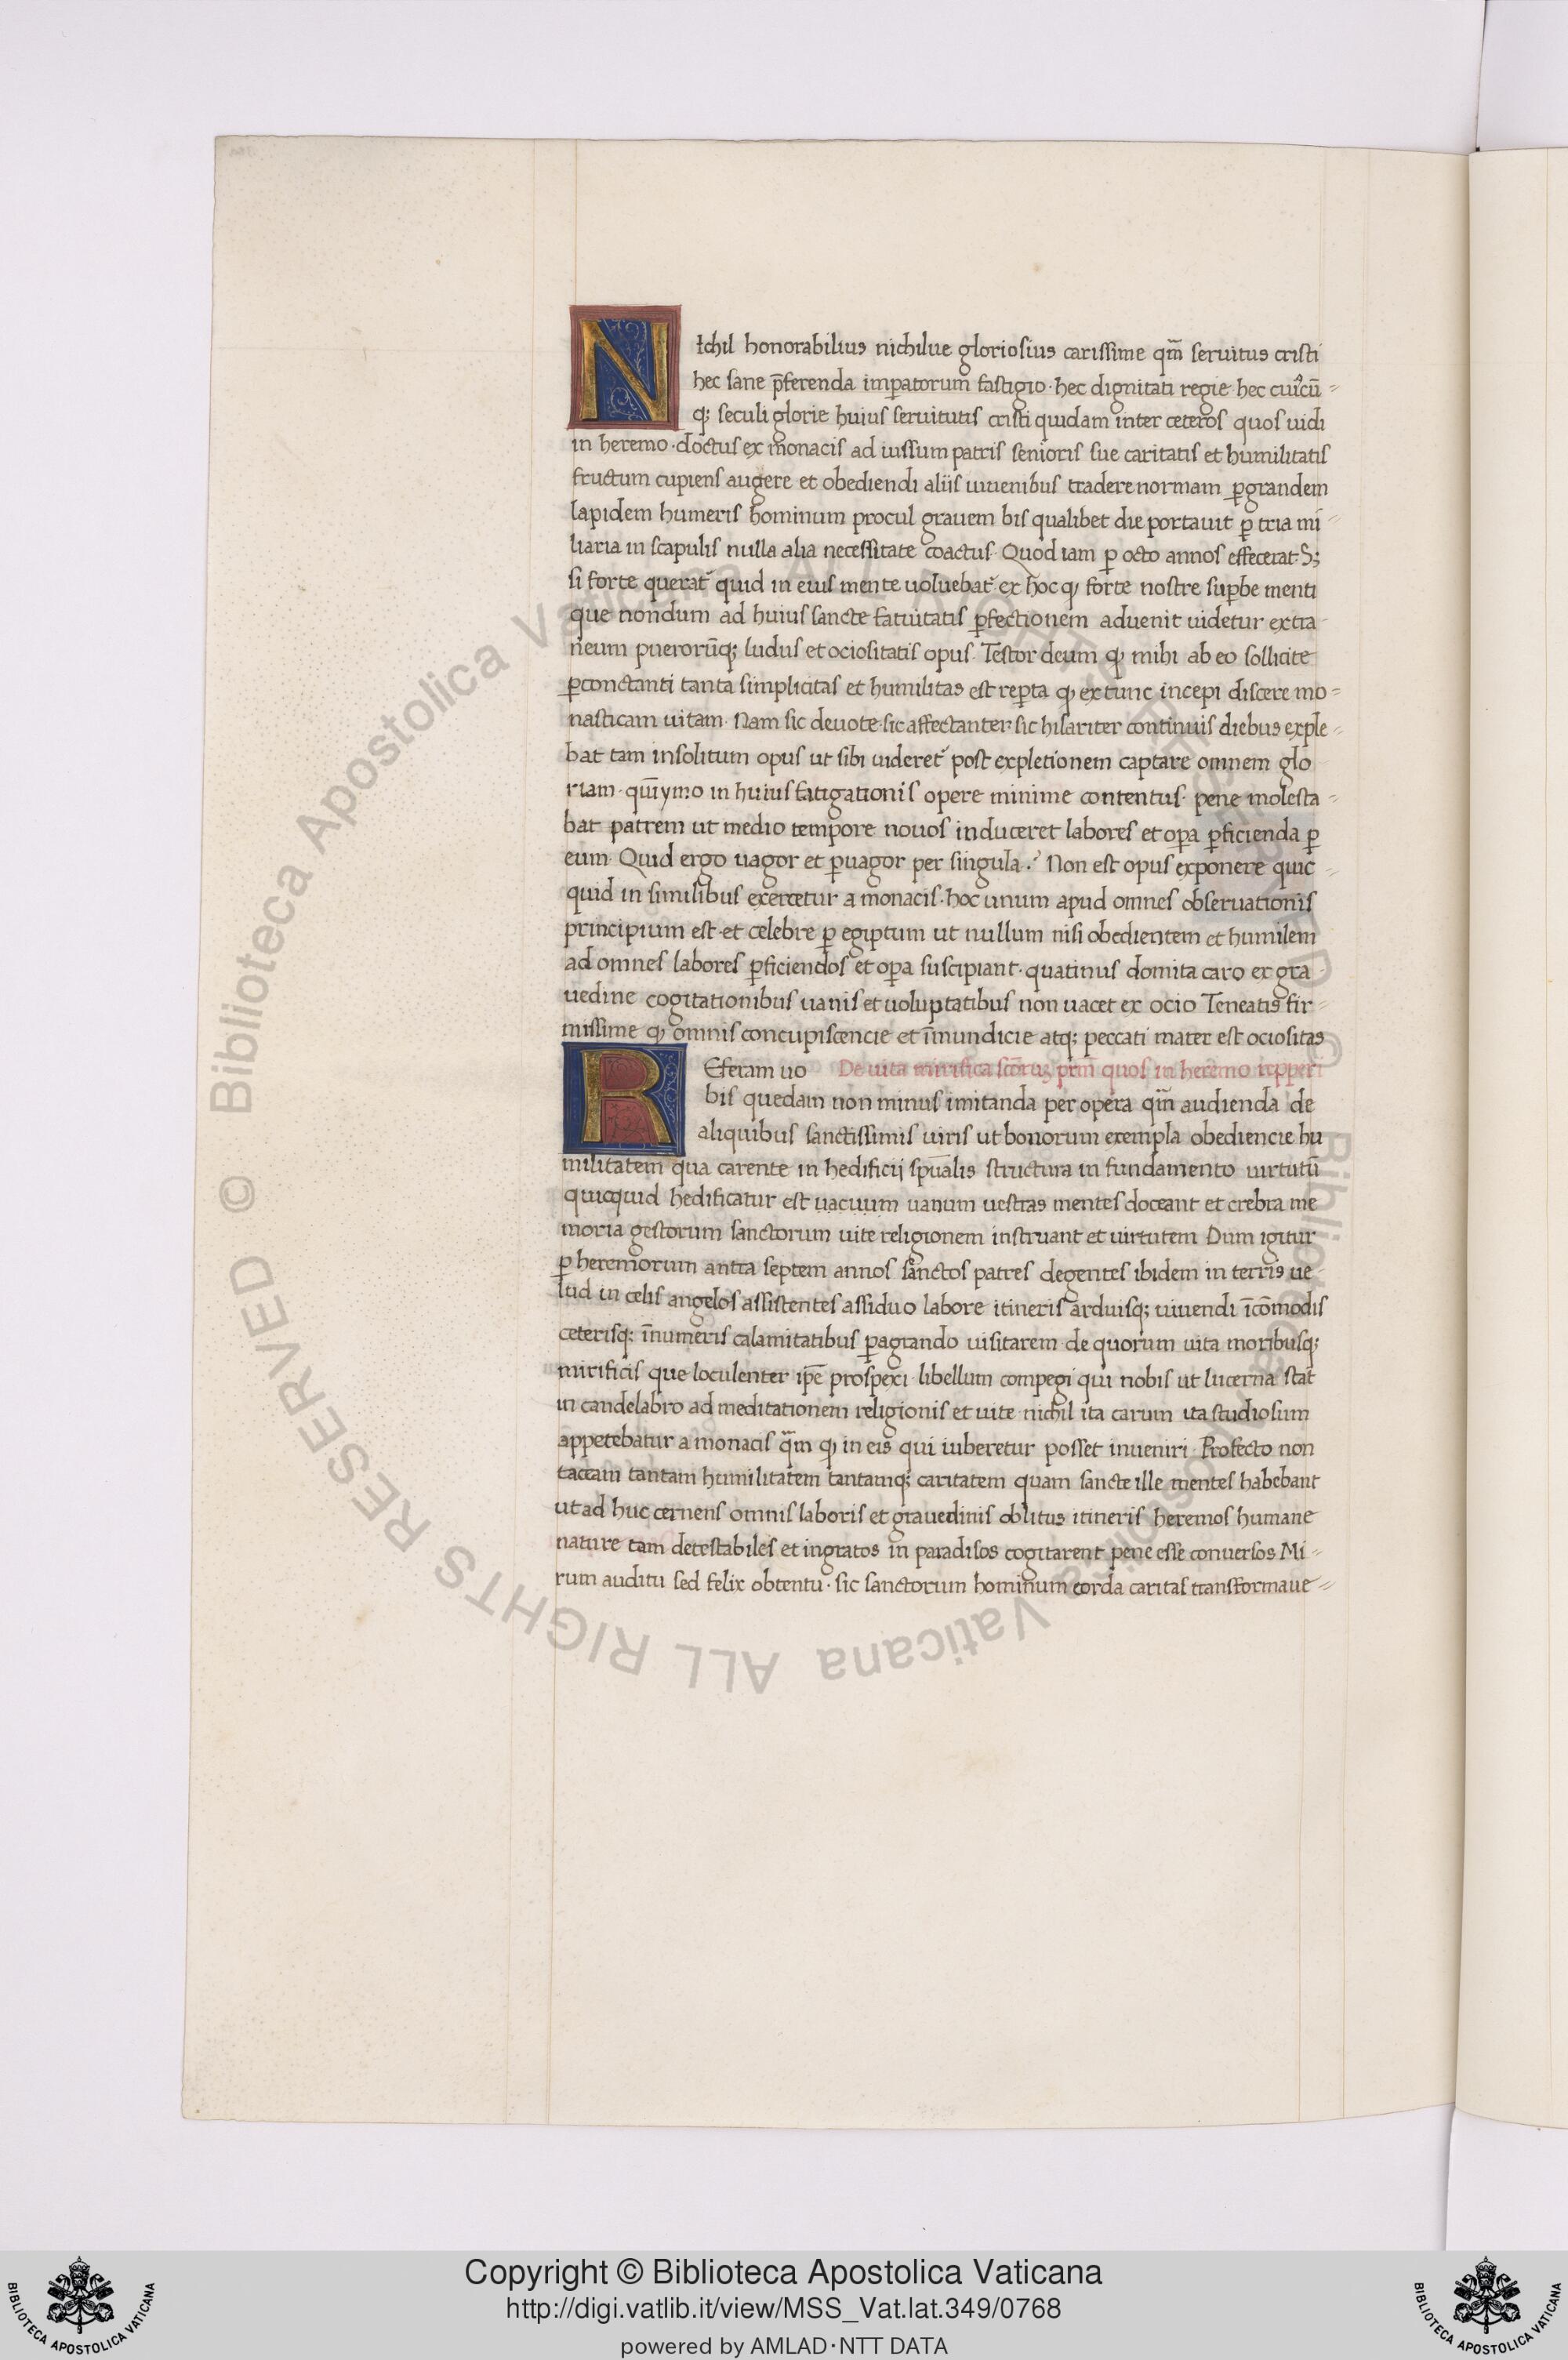 Nichil honorabilius nichilue gloriosius carissime qm̄ seruitus cristi
hec sane p̄ferenda imꝑatorum fastigio · hec dignitati regie hec cuicū
qꝫ seculi glorie huius seruitutis cristi quidam inter ceteros quos uidi
in heremo · doctus ex monacis ad iussum patris senioris sue caritatis et humilitatis
fructum cupiens augere et obediendi aliis iuuenibus tradere normam ꝑgrandem
lapidem humeris hominum procul grauem bis qualibet die portauit ꝑ tria mi
liaria in scapulis nulla alia necessitate coactus · Quod iam ꝑ octo annos effecerat · Sꝫ
si forte querat᷑ quid in eius mente uoluebat᷑ ex hoc qꝫ forte nostre suꝑbe menti
que nondum ad huius sancte fatuitatis ꝑfectionem aduenit uidetur extra
neum puerorūqꝫ ludus et ociositatis opus · Testor deum qꝫ mihi ab eo sollicite
ꝑconctanti tanta simplicitas et humilitas est reꝑta qꝫ ex tunc incepi discere mo=
nasticam uitam · Nam sic deuote · sic affectanter · sic hilariter continuis diebus exple=
bat tam insolitum opus ut sibi uideret᷑ post expletionem captare omnem glo
riam · quīymo in huius fatigationis opere minime contentus · pene molesta-
bat patrem ut medio tempore nouos induceret labores et oꝑa ꝑficienda ꝑ
eum · Quid ergo uagor et ꝑuagor per singula? Non est opus exponere quic-
quid in similibus exercetur a monacis · hoc unum apud omnes obseruationis
principium est · et celebre ꝑ egiptum ut nullum nisi obedientem et humilem
ad omnes labores ꝑficiendos et oꝑa suscipiant · quatinus domita caro ex gra
uedine cogitationibus uanis et uoluptatibus non uacet ex ocio Teneatis fir-
missime qꝫ omnis concupiscencie et īmundicie atqꝫ peccati mater est ociositas
REferam uo De uita mirifica scōruꝫ prm̄ quos in heremo repperi
bis quedam non minus imitanda per opera qm̄ audienda de
aliquibus sanctissimis uiris ut bonorum exempla obediencie hu
militatem qua carente in hedificij spūalis structura in fundamento uirtutū
quicquid hedificatur est uacuum uanum uestras mentes doceant et crebra me
moria gestorum sanctorum uite religionem instruant et uirtutem Dum igitur
ꝑ heremorum antra septem annos sanctos patres degentes ibidem in terris ue
lud in celis angelos assistentes assiduo labore itineris arduisqꝫ uiuendi īcōmodis
ceterisqꝫ īnumeris calamitatibus ꝑagrando uisitarem · de quorum uita moribusqꝫ
mirificis que loculenter ip̄e prospexi · libellum compegi qui nobis ut lucerna stat
in candelabro ad meditationem religionis et uite · nichil ita carum ita studiosum
appetebatur a monacis qm̄ qꝫ in eis qui iuberetur posset inueniri · Profecto non
taceam tantam humilitatem tantamqꝫ caritatem quam sancte ille mentes habebant
ut ad huc cernens omnis laboris et grauedinis oblitus itineris heremos humane
nature tam detestabiles et ingratos in paradisos cogitarent pene esse conuersos Mi=
rum auditu sed felix obtentu · sic sanctorum hominum corda caritas transformaue=
© Biblioteca Apostolica Vaticana ALL RIGHTS RESERVED
Copyright © Biblioteca Apostolica Vaticana
http://digi.vatlib.it/view/MSS_Vat.lat.349/0768
powered by AMLAD·NTT DATA
BIBLIOTECA APOSTOLICA VATICANA
BIBLIOTECA APOSTOLICA VATICANA